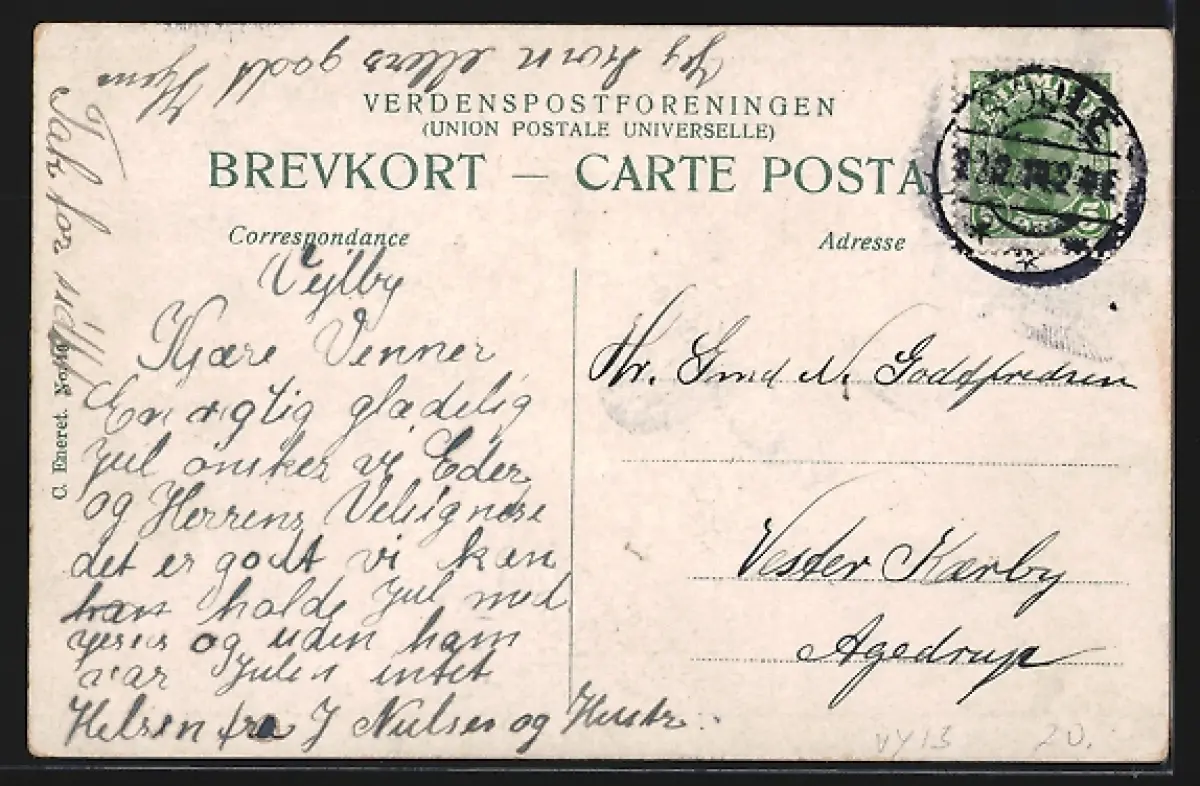 Jeg kom ellers godt Hjem
VERDENSPOSTFORENINGEN
(UNION POSTALE UNIVERSELLE)
BREVKORT — CARTE POSTA
Correspondance
Adresse
Vejlby
Kjære Venner
En rigtig glædelig
Jul ønsker vi Eder
og Herrens Velsignelse
det er godt vi kan
holde Jul med
Jesus og uden ham
var Julen intet
Helsen fra J Nielsen og Hustr
Tak for sidst
C. Eneret.
Hr. Gmd N. Goddfredsen
Vester Kærby
Agedrup
5
VY13
20.